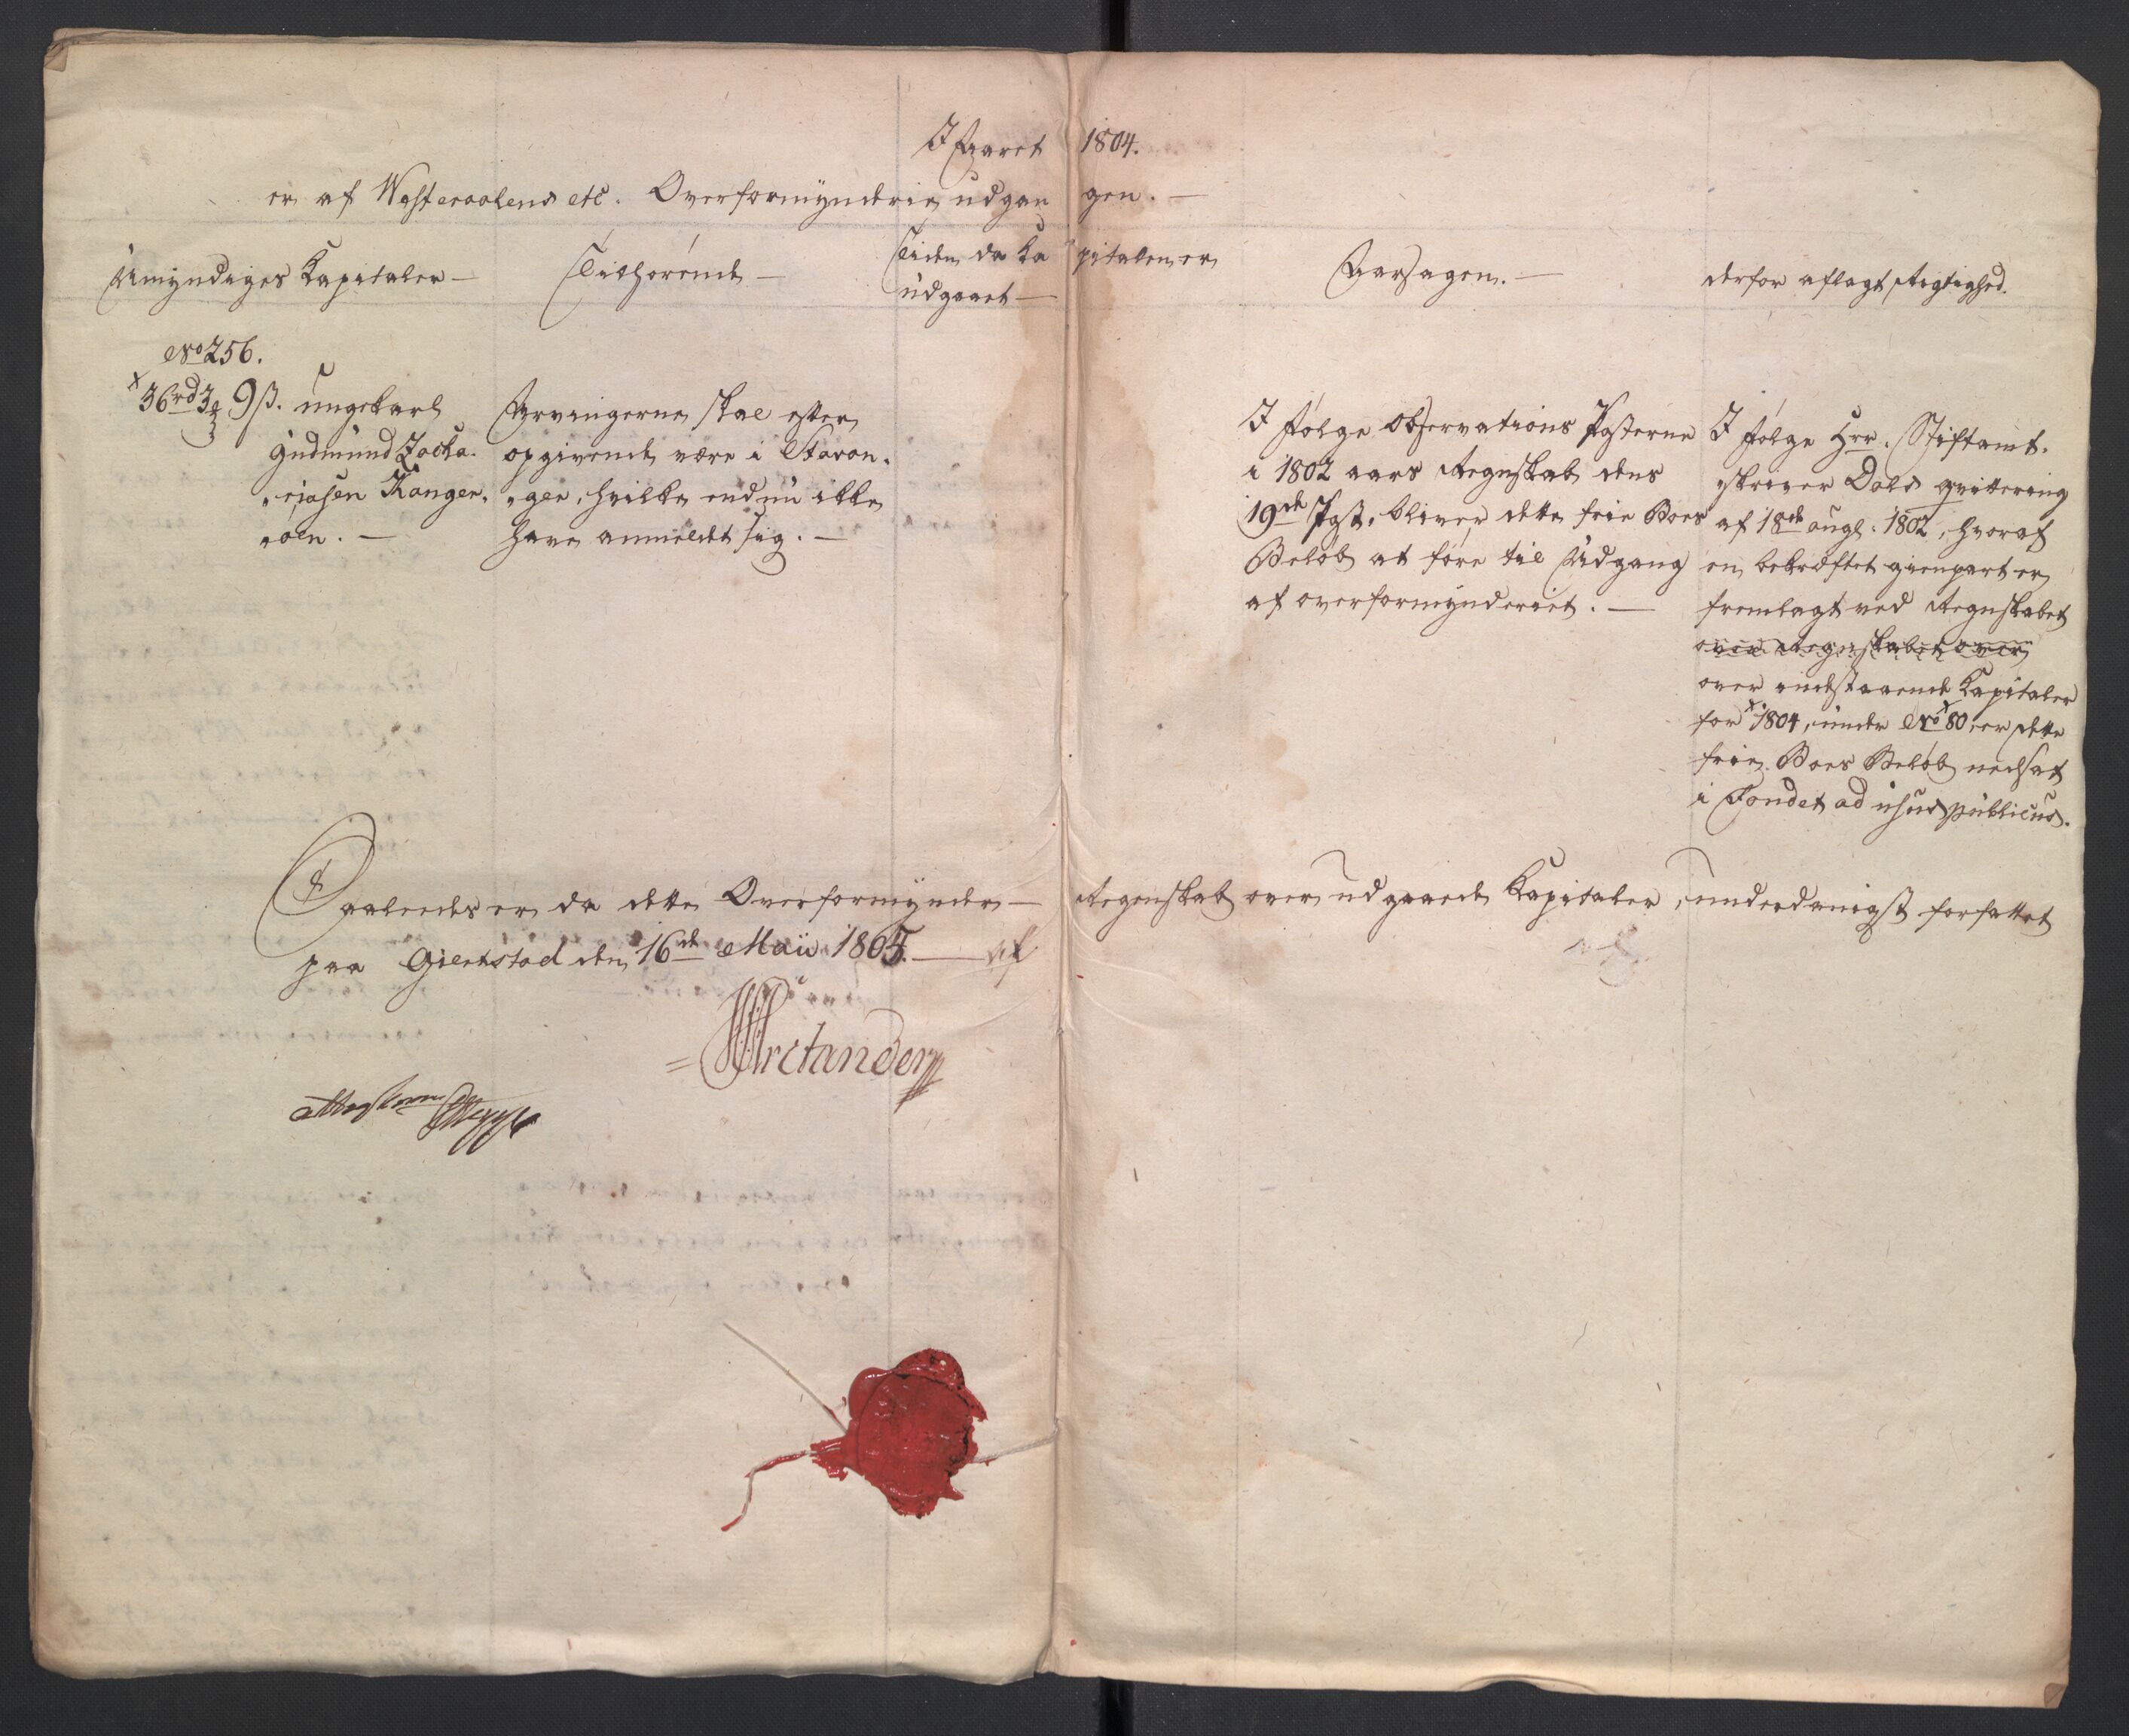 I Aaret 1804.
er af Westeraalens etc. Overformynderie udgan gen. —
Umyndiges Kapitaler —
Tilhørende —
Tiden da Ka pitalen er
udgaaet —
Aarsagen. —
derfor aflagt Rigtighed.
No 256.
36 rd 3 9 ß. ungekarl
Gudmund Zacha-
"riasen Kanger-
"oen. —
Arvingerne skal efter
opgivende være i Stavan-
"ger, hvilke endnu ikke
have anmeldt sig. —
I følge Observations Posterne
i 1802 aars Regnskab dens
19de Post, bliver dette frie Boes
Beløb at føre til Udgang
af overformynderiet. —
I følge Hrr. Stiftamt-
skriver Dahls qvittering
af 18de augl. 1802, hvoraf
en bekræftet gienpart er
fremlagt ved Regnskabet
over Regnskabet over
over indestaaende Kapitaler
for 1804, under No 80, er dette
frie Boes Beløb nedsat
i Fondet ad usus publicus.
Saaledes er da dette Overformynder- Regnskab over udgaaede Kapitaler, underdanigst forfattet
paa Gierstad den 16de Maii 1805. — af
Arctander